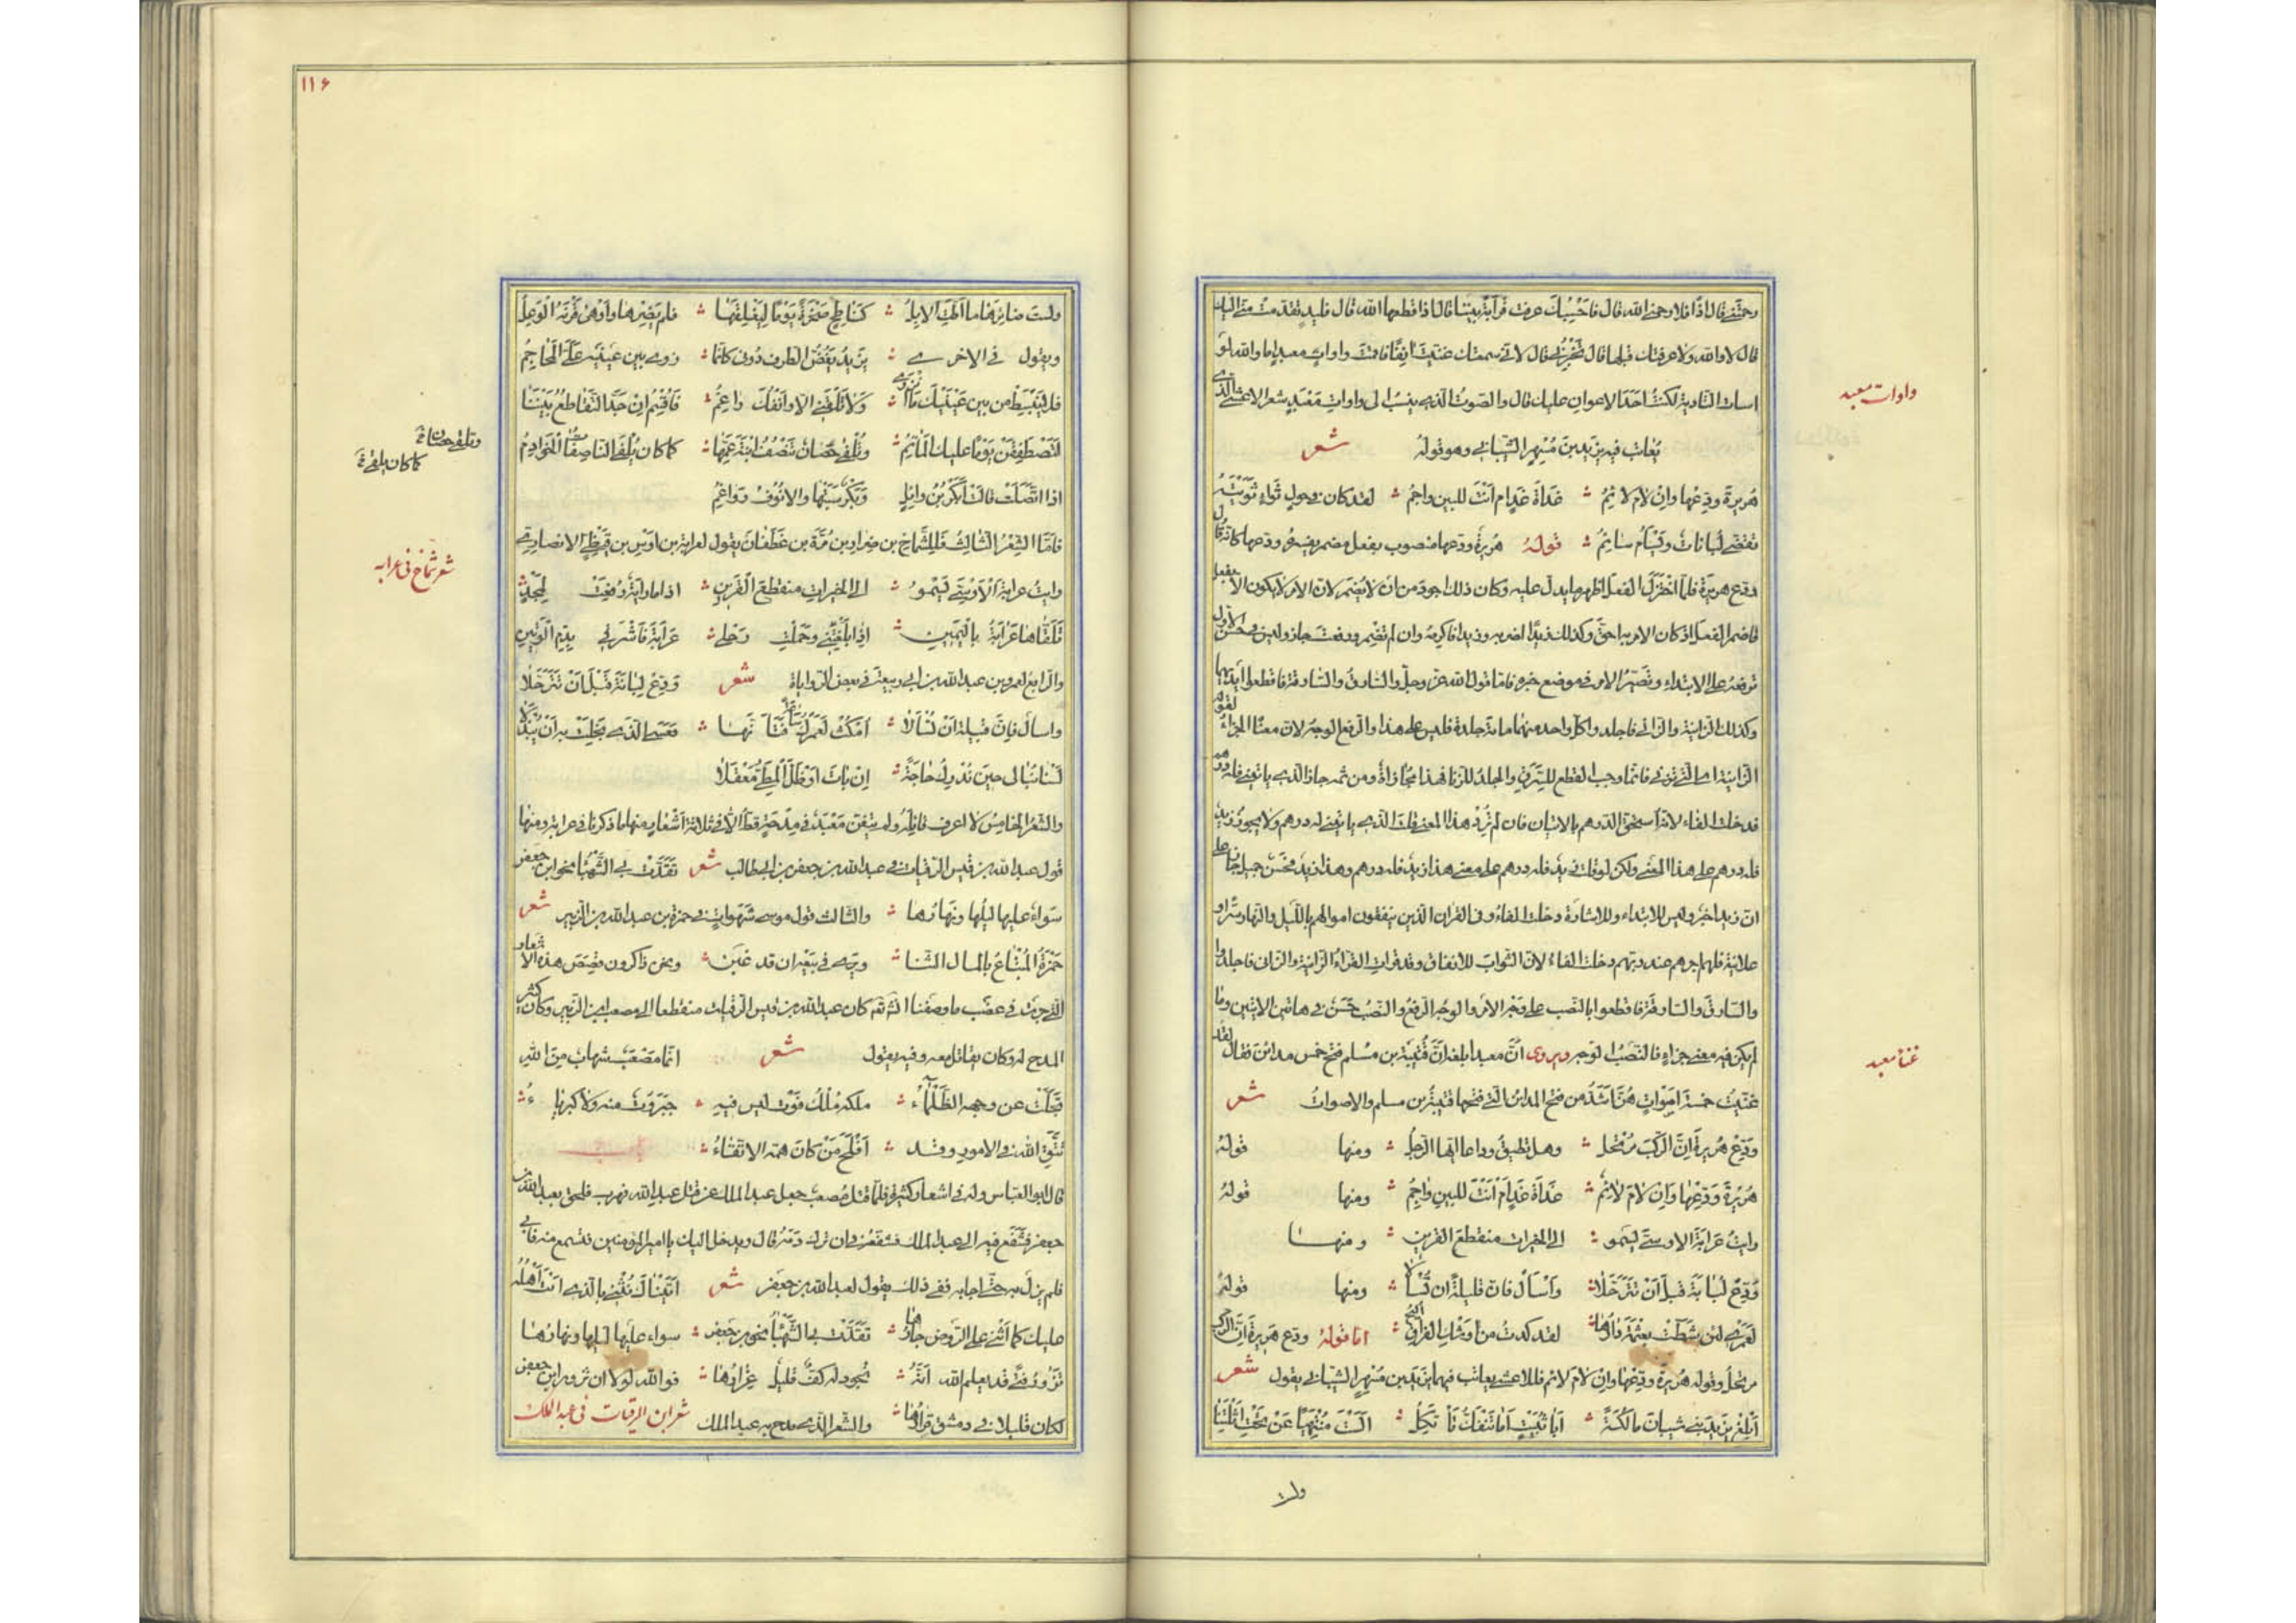 وحتنى قال اذا فلا وحمى الله قال فاحسبك عرفت قرابة بيننا قال اذا قطعها الله قال فليد تقدمت منى اليك
قال لا والله ولا عرفتك قبلها قال فخبرنى قال لانى سمعتك غنيت انفا فاقمت واوات معبد اما والله لو
اسات التادية لكنت احد الاعوان عليك قال والصوت الذى ينسب الى واوات معبد شعر الاعشى الذى
يعاتب فيه يزيد بن مسهر الشيبانى وهو قوله شعر
هريرة ودعها وان لام لائم غداة غد ام انت للبين واجم لقد كان فى حول ثواء ثويته
تقضى لبانات ويسام سائم قوله هريرة ودعها منصوب بفعل مضمر تفسيره ودعها كانه قال
ودع هريرة فلما اختزل الفعل اظهر ما يدل عليه وكان ذلك اجود من ان لا يضمر لان الامر لا يكون الا بفعل
فاضمر الفعل اذ كان الامر به احق وكذلك زيدا اضربه وزيدا فاكرمه وان لم تضمر ورفعت جاز وليس فى حسن الاول
ترفعه على الابتداء وتصير الامر فى موضع خبره فاما قول الله عز وجل والسارق والسارقة فاقطعوا ايديهما
وكذلك الزانية والزانى فاجلدوا كل واحد منهما مائة جلدة فليس على هذا والرفع الوجه لان معناه الجزاء لقوله
الزانية اى التى تزنى فانما وجب القطع للسرق والجلد للزنا فهذا مجازاة ومن ثمه جاز الذى ياتينى فله درهم
فدخلت الفاء لانه استحق الدرهم بالاتيان فان لم ترد هذا المعنى قلت الذى ياتينى له درهم ولا يجوز زيد
فله درهم على هذا المعنى ولكن لو قلت زيد فله درهم على معنى هذا زيد فله درهم وهذا زيد فحسن جميل جاز على
ان زيدا خبر وليس للابتداء وللاشارة دخلت الفاء وفى القران الذين ينفقون اموالهم بالليل والنهار سرا و
علانية فلهم اجرهم عند ربهم دخلت الفاء لان الثواب للانفاق وقد قرات القراء الزانية والزانى فاجلدوا
والسارق والسارقة فاقطعوا بالنصب على وجه الامر والوجه الرفع والنصب حسن فى هاتين الايتين وما
لم يكن فيه معنى جزاء فالنصب الوجه ويروى ان معبدا بلغه ان قتيبة بن مسلم فتح خمس مدائن فقال لقد
غنيت خمسة اصوات هن اشد من فتح المدائن التى فتحها قتيبة بن مسلم والاصوات شعر
ودع هريرة ان الركب مرتحل وهل تطيق وداعا ايها الرجل ومنها قوله
هريرة ودعها وان لام لائم غداة غد ام انت للبين واجم ومنها قوله
رايت عرابة الاوسى يسمو الى الخيرات منقطع القرين ومنها
ودع لبابة قبل ان تترحلا واسال فان قليلة ان تسالا ومنها قوله
لعمرى لئن شطت بعثمة دارها لقد كدت من وشك الفراق اليح اما قوله ودع هريرة ان الركب
مرتحل وقوله هريرة ودعها وان لام لائم فللاعشى يعاتب فيهما يزيد بن مسهر الشيبانى يقول شعر
ابلغ يزيد بنى شيبان مالكة ابا ثبيت اما تنفك تاتكل الست منتهيا عن نحت اثلتنا
ولست
واوات معبد
غناء معبد
١١۶
ولست ضائرها ما اطت الابل كناطح صخرة يوما ليفلقها فلم يضرها واوهى قرنه الوعل
ويقول فى الاخرى يزيد يغض الطرف دونى كانما زوى بين عينيه على المحاجم
فلا ينبسط من بين عينيك ما انزوى ولا تلقنى الا وانفك راغم فاقسم ان جد التقاطع بيننا
لتصطفقن يوما عليك الماتم وتلفى حصان تنصف ابنة عمها كما كان يلفى الناصفات الخوادم
اذا اتصلت قالت ابكر بن وائل وبكر سبتها والانوف رواغم
فاما الشعر الثالث فللشماخ بن ضرار بن مرة بن غطفان يقول لعرابة بن اوس بن قيظى الانصارى
رايت عرابة الاوسى يسمو الى الخيرات منقطع القرين اذا ما راية رفعت لمجد
تلقاها عرابة باليمين اذا بلغتنى وحملت رحلى عرابة فاشرقى بدم الوتين
والرابع لعمر بن عبد الله بن ابى ربيعة فى بعض الرواياة شعر ودع لبابة قبل ان تترحلا
واسال فان قليلة ان تسالا امكث لعمرك ساعة فتانها فعسى الذى بخلت به ان يبذلا
لسنا نبالى حين ندرك حاجة ان بات او ظل المطى معقلا
والشعر الخامس لا اعرف قائله ولم يتغن معبد فى مدحة قط الا فى ثلاثة اشعار منها ما ذكرنا فى عرابة ومنها
قول عبد الله بن قيس الرقيات فى عبد الله بن جعفر بن ابى طالب شعر تقدت بى الشهباء نحو ابن جعفر
سواء عليها ليلها ونهارها والثالث قول موسى شهوات فى حمزة بن عبد الله بن الزبير شعر
حمزة المبتاع بالمال الثنا ويرى فى بيعه ان قد غبن ونحن ذاكرون قصص هذه الاشعار
التى جرت فى عقب ما وصفنا ان شم كان عبد الله بن قيس الرقيات منقطعا الى مصعب بن الزبير وكان كثير
المدح له وكان يقاتل معه وفيه يقول شعر انما مصعب شهاب من الله
تجلت عن وجهه الظلماء ملكه ملك قوة ليس فيه جبروت منه ولا كبرياء
يتقى الله فى الامور وقد افلح من كان همه الاتقاء
قال ابو العباس وله فى اشعار كثيرة فلما قتل مصعب جعل عبد الملك عن قتل عبد الله فهرب فلحق بعبد الله بن
جعفر فشفع فيه الى عبد الملك فشفعه فى ان ترك دمه قال ويدخل اليك يا امير المؤمنين فتسمع منه فابى
فلم يزل به حتى اجابه ففى ذلك يقول لعبد الله بن جعفر شعر اتيناك نثنى بالذى انت اهله
عليك كما اثنى على الروض جارها تقدت بى الشهباء نحو بن جعفر سواء عليها ليلها ونهارها
تزور فتى قد يعلم الله انه تجود له كف قليل غرارها فوالله لولا ان تزور ابن جعفر
لكان قليلا فى دمشق قرارها والشعر الذى مدح به عبد الملك شعر ابن الرقيات فى عبد الملك
وتلقى حصان
كما كان يلقى
شعر شماخ فى عرابه